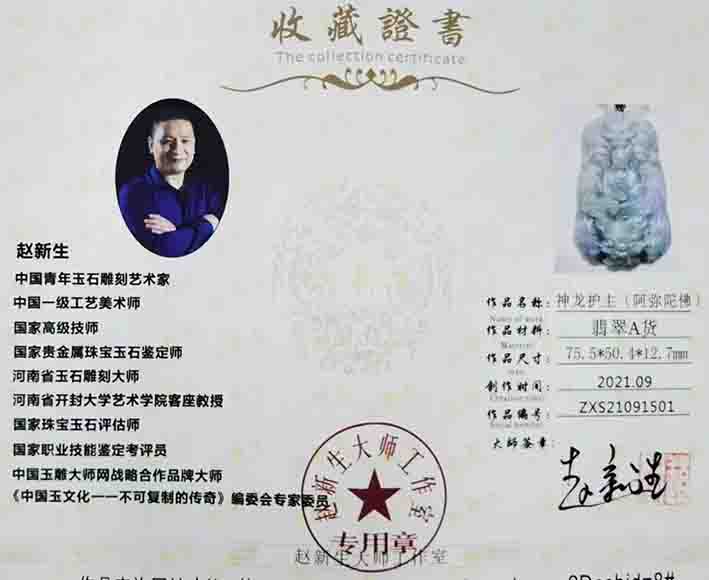 收藏證書
The collection certificate
赵新生
中国青年玉石雕刻艺术家
中国一级工艺美术师
国家高级技师
国家贵金属珠宝玉石鉴定师
河南省玉石雕刻大师
河南省开封大学艺术学院客座教授
国家珠宝玉石评估师
国家职业技能鉴定考评员
中国玉雕大师网战略合作品牌大师
《中国玉文化一一不可复制的传奇》编委会专家委员
作品名称: 神龙护主（阿弥陀佛）
Name of work
作品材料: 翡翠A货
Material
作品尺寸: 75.5*50.4*12.7mm
制作时间: 2021.09
Creation time
作品编号: ZXS21091501
大师签章:
赵新生
赵新生大师工作室
专用章
赵新生大师工作室